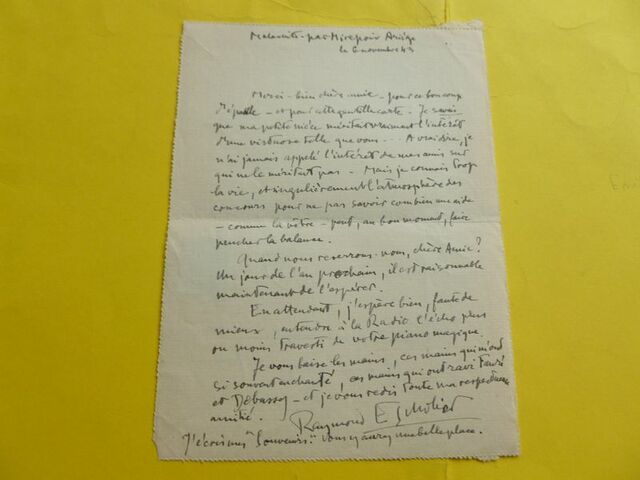 par Mirepoix Ariège
le 6 novembre 43
Merci - bien chère amie - pour ce bon coup
d'épaule - et pour cette gentille carte. Je savais
que ma petite nièce méritait vraiment l'intérêt
d'une virtuose telle que vous... A vrai dire, je
n'ai jamais appelé l'intérêt de mes amis sur
qui ne le méritait pas - Mais je connais trop
la vie, et singulièrement l'atmosphère des
concours pour ne pas savoir combien une aide
- comme la vôtre - peut, au bon moment, faire
pencher la balance.
Quand nous reverrons-nous, chère Amie?
Un jour de l'an prochain, il est raisonnable
maintenant de l'espérer.
En attendant, j'espère bien, faute de
mieux, entendre à la Radio l'écho plus
ou moins travesti de votre piano magique.
Je vous baise les mains, ces mains qui m'ont
si souvent enchanté, ces mains qui ont ravi Fauré
et Debussy - et je vous redis toute ma respectueuse
amitié.
Raymond Escholier
J'écris mes "Souvenirs". Vous y aurez une belle place.